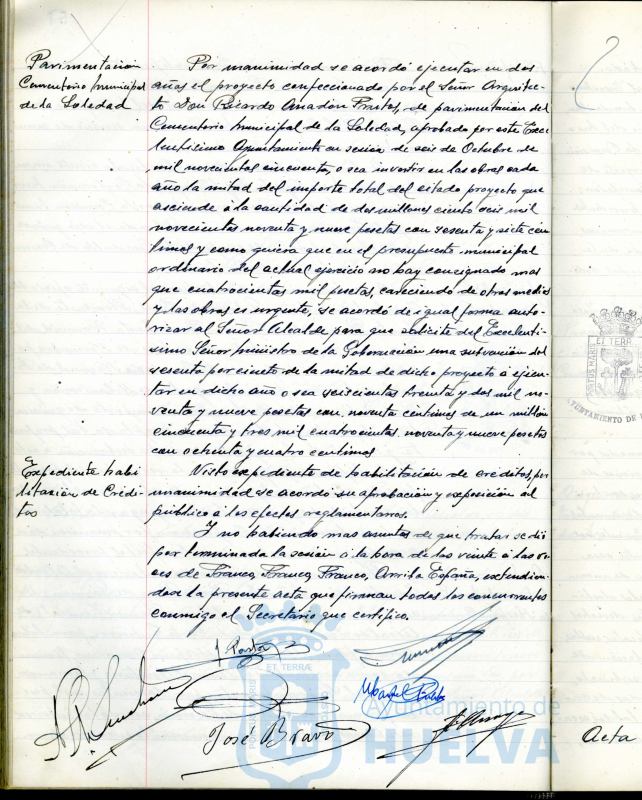 Pavimentación
Cementerio Municipal
de la Soledad
Por unanimidad se acordó ejecutar en dos
años el proyecto confeccionado por el Señor Arquitec-
to Don Ricardo Anadón Frutos, de pavimentación del
Cementerio Municipal de la Soledad, aprobado por este Exce-
lentísimo Ayuntamiento en sesión de seis de Octubre de
mil novecientos cincuenta, o sea invertir en las obras cada
año la mitad del importe total del citado proyecto que
asciende á la cantidad de dos millones ciento seis mil
novecientas noventa y nueve pesetas con sesenta y siete cén-
timos y como quiera que en el presupuesto municipal
ordinario del actual ejercicio no hay consignado mas
que cuatrocientas mil pesetas, careciendo de otros medios
y las obras es urgente, se acordó de igual forma auto-
rizar al Señor Alcalde para que solicite del Excelentí-
simo Señor Ministro de la Gobernación una subvención del
sesenta por ciento de la mitad de dicho proyecto á ejecu-
tar en dicho año o sea seiscientas treinta y dos mil no-
venta y nueve pesetas con noventa céntimos de un millón
cincuenta y tres mil cuatrocientas noventa y nueve pesetas
con ochenta y cuatro céntimos
Expediente habi
litación de Crédi-
tos
Visto expediente de habilitación de créditos, por
unanimidad se acordó su aprobación y exposición al
público á los efectos reglamentarios.
Y no habiendo mas asuntos de que tratar se dió
por terminada la sesión á la hora de las veinte á las vo-
ces de Franco, Franco, Franco, Arriba España, extendién-
dose la presente acta que firman todos los concurrentes
conmigo el Secretario que certifico.
José Bravo
Acta
ET TERRÆ
Ayuntamiento de
HUELVA
ET TERR
AYUNTAMIENTO DE